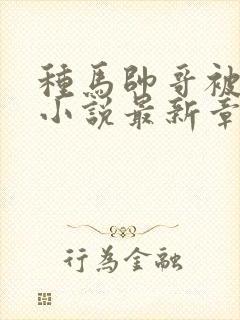 種馬帥哥被
小說最新章
行為金融